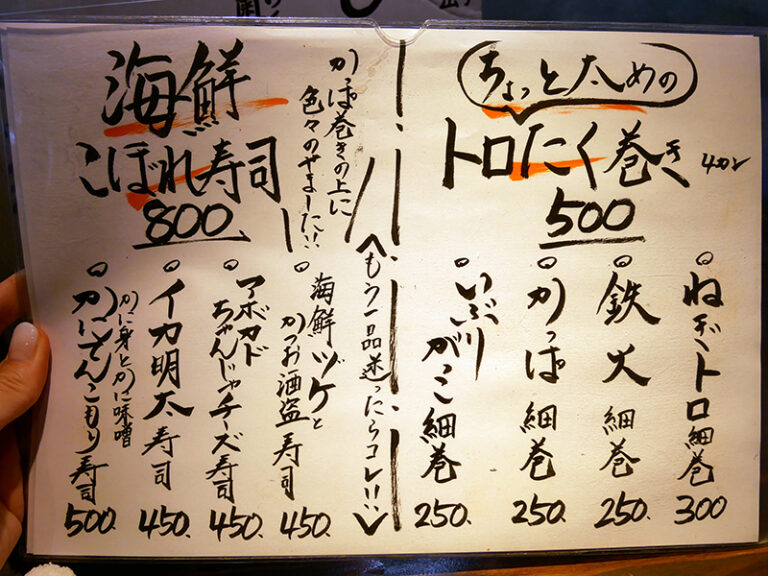 ちょっと太めの
トロたく巻き 4カン
500
ねぎトロ細巻 300
鉄火細巻 250.
かっぱ細巻 250.
いぶりがっこ細巻 250.
〈もう一品迷ったらコレ!!〉
かっぱ巻きの上に
色々のせました!!
海鮮
こぼれ寿司
800.
海鮮ヅケと
かつお酒盗寿司 450.
アボカド
ちゃんじゃチーズ寿司 450.
イカ明太寿司 450.
かに身とかに味噌
かにてんこもり寿司 500.